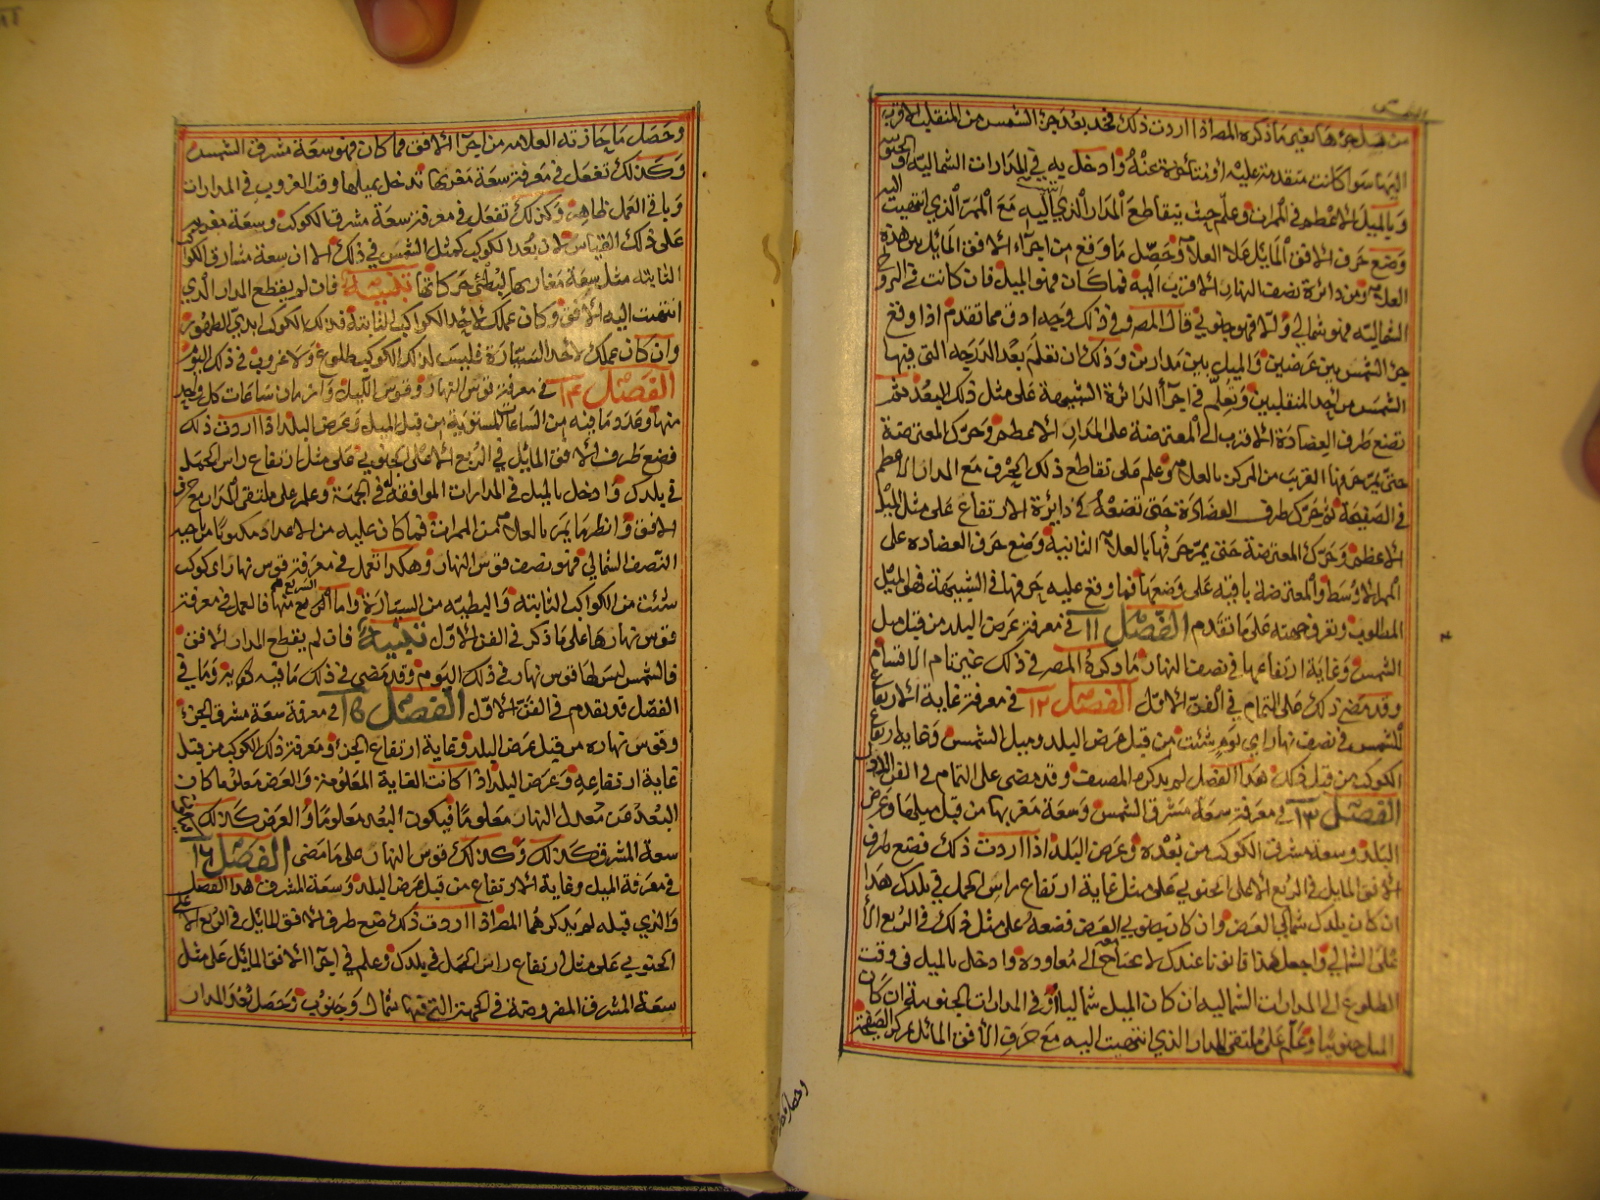 من قبل جزءها بغير ما ذكره المص اذا اردت ذلك فخذ بعد جزء الشمس من المنقلب الاقرب
اليها سوا كانت متقدمة عليه او متأخرة عنه وادخل به في المدارات الشمالية او الجنوبية
وبالميل الاعظم في الممرات وعلّم حيث يتقاطع المدار الذي اليه مع الممر الذي انتهيت اليه
وضع حرف الافق المائل على العلامة وحصّل ما وقع من اجزاء الافق المائل بين هذه
العلامة ومن دائرة نصف النهار الاقرب اليه فما كان فهو الميل فان كانت في البروج
الشمالية فهو شمالي والا فهو جنوبي قال المص وفي ذلك وجه ادق مما تقدم اذا وقع
جزء الشمس بين عرضين والميل بين مدارين وذلك ان تعلم بعد الدرجه التي فيها
الشمس من احد المنقلبين وتعلّم في اجزأ الدائرة الشبيهة على مثل ذلك البعد ثم
تضع طرف العضادة الاقرب الى المعترضة على المدار الاعظم وحرّك المعترضة
حتى يمرّ حرفها القريب من المركز بالعلامة وعلم على تقاطع ذلك الحرف مع المدار الاعظم
في الصفيحة ثم حرّك طرف العضادة حتى تضعه في دائرة الارتفاع على مثل الميل
الاعظم وحرّك المعترضة حتى يمرّ حرفها بالعلامة الثانية وضع حرف العضاده على
المدار الاوسط والمعترضة باقية على وضعها فما وقع عليه حرفها في الشبيهة فهو الميل
المطلوب وتعرف جهته على ما تقدم الفصل ١١ في معرفة عرض البلد من قبل ميل
الشمس وغاية ارتفاعها في نصف النهار ما ذكره المص في ذلك غير تام الاقسام
وقد مضى ذلك على التمام في الفن الاول الفصل ١٢ في معرفة غاية الارتفاع
للشمس في نصف نهار اي يوم شئت من قبل عرض البلد وميل الشمس وغاية ارتفاع
الكوكب من قبل ذلك هذا الفصل لم يذكره المصنف وقد مضى على التمام في الفن الاول
الفصل ١٣ في معرفة سعة مشرق الشمس وسعة مغربها من قبل ميلها وعرض
البلد وسعة مشرق الكوكب من بُعْده وعرض البلد اذا اردت ذلك فتضع طرف
الافق المايل في الربع الاعلى الجنوبي على مثل غاية ارتفاع راس الحمل في بلدك هذا
ان كان بلدك شمالي العرض وان كان جنوبي العرض فضعه على مثل ذلك في الربع الأ
على الشمالي واجعل هذا قانونا عندك لا تحتاج الى معاودة وادخل بالميل في وقت
الطلوع الى المدارات الشماليه ان كان الميل شماليا أو في المدارات الجنوبية ان كان
الميل جنوبيا وعلّم على ملتقى المدار الذي انتهيت اليه مع حرف الافق المائل عن الصفيحة
وحصل ما جازته العلامه من اجزآ الافق فما كان فهو سعة مشرق الشمس
وكذلك تفعل في معرفة سعة مغربها تدخل بميلها وقت الغروب في المدارات
وباقي العمل ظاهر وكذلك تفعل في معرفة سعة مشرق الكوكب وسعة مغربه
على ذلك القياس لان بعد الكوكب كمثل الشمس في ذلك الا ان سعة مشارق الكواكب
الثابته مثل سعة مغاربها لبطئ حركاتها تنبيه فان لم يقطع المدار الذي
انتهيت اليه الافق وكان عملك لاحد الكواكب الثابتة فذلك الكوكب ابدي الظهور
وان كان عملك لاحد السيّارة فليس لذلك الكوكب طلوع ولا غروب في ذلك اليوم
الفصل ١٤ في معرفة قوس النهار وقوس الليل وازمان ساعات كل واحد
منها وعدد ما فيه من الساعات المستوية من قبل الميل وعرض البلد اذا اردت ذلك
فضع طرف الافق المائل في الربع الاعلى الجنوبي على مثل ارتفاع راس الحمل
في بلدك وادخل بالميل في المدارات الموافقة له في الجهة وعلم على ملتقى المدار مع حرف
الافق وانظر ما يمر بالعلامة من الممرات فما كان عليه من الاعداد مكتوبا من جهة
النصف الشمالي فهو نصف قوس النهار وهكذا تعمل في معرفة قوس نهار اي كوكب
شئت من الكواكب الثابتة والبطيه من السيّارة واما السريع منها فالعمل في معرفة
قوس نهارها على ما ذكر في الفن الاول تنبيه فان لم يقطع المدار الافق
فالشمس ليس لها قوس نهار في ذلك اليوم وقد مضى في ذلك ما فيه كفاية وما في
الفصل قد تقدم في الفن الاول الفصل ١٥ في معرفة سعة مشرق الجزء
وقوس نهاره من قبل عرض البلد وغاية ارتفاع الجزء ومعرفة ذلك الكوكب من قبل
غاية ارتفاعه وعرض البلد اذا كانت الغاية المعلومة والعرض معلوما كان
البعد عن معدل النهار معلومًا فيكون البعد معلومًا والعرض كذلك
سعة المشرق كذلك وكذلك قوس النهار على ما مضى الفصل ١٦
في معرفة الميل وغاية الارتفاع من قبل عرض البلد وسعة المشرق هذا الفصل
والذي قبله لم يذكرهما المص اذا اردت ذلك ضع طرف الافق المائل في الربع الاعلى
الجنوبي على مثل ارتفاع راس الحمل في بلدك وعلم في اجزآ الافق المائل على مثل
سعة المشرق المفروضة في الجهة التي فيها شمال وجنوب وحصل بُعْد المدار
وحصل